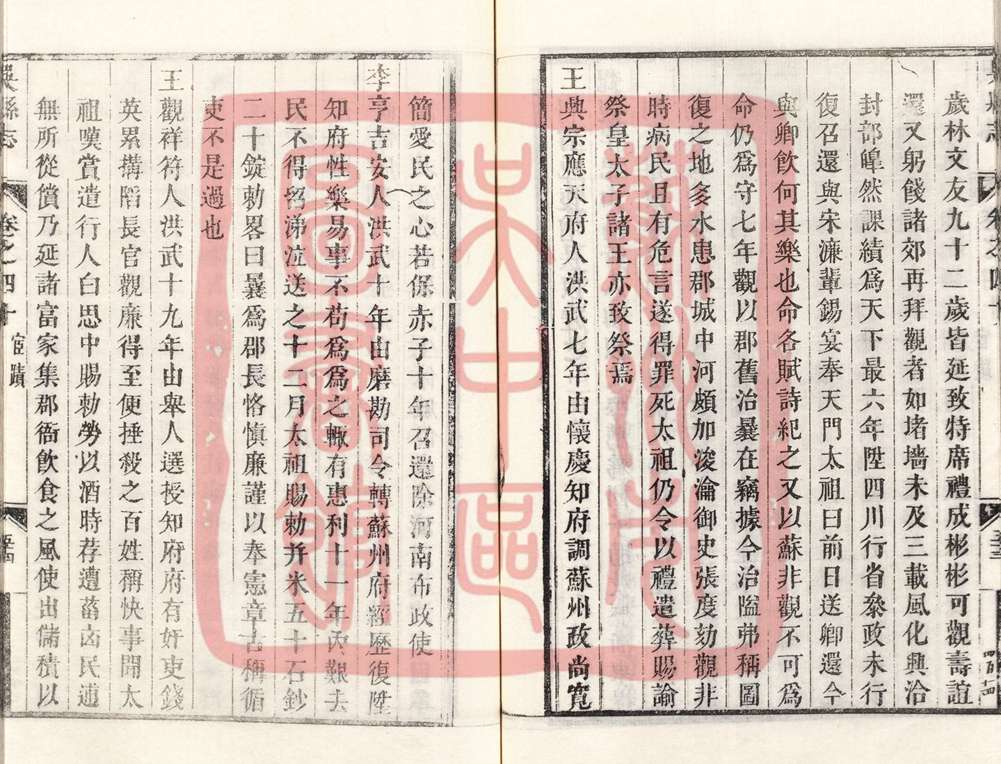 歲林文友九十二歲皆延致特席禮成彬彬可觀壽誼
還又躬餞諸郊再拜觀者如堵墻未及三載風化興洽
封部皥然課績爲天下最六年陞四川行省叅政未行
復召還與宋濂輩錫宴奉天門太祖曰前日送卿還今
與卿飲何其樂也命各賦詩紀之又以蘇非觀不可爲
命仍爲守七年觀以郡舊治曩在竊據今治隘弗稱圖
復之地多水患郡城中河頗加浚瀹御史張度劾觀非
時病民且有危言遂得罪死太祖仍令以禮遣葬賜諭
祭皇太子諸王亦致祭焉
王興宗應天府人洪武七年由懷慶知府調蘇州政尚寛
吳縣志
卷之四十
宦蹟
簡愛民之心若保赤子十年召還除河南布政使
李亨吉安人洪武十年由磨勘司令轉蘇州府經歷復陞
知府性樂易事不苟爲爲之輙有惠利十一年丙艱去
民不得留涕泣送之十二月太祖賜勅并米五十石鈔
二十錠勅畧曰曩爲郡長恪慎廉謹以奉憲章古稱循
吏不是過也
王觀祥符人洪武十九年由舉人選授知府府有奸吏錢
英累搆陷長官觀廉得至便捶殺之百姓稱快事聞太
祖嘆賞遣行人白思中賜勅勞以酒時荐遭菑凶民逋
無所從償乃延諸富家集郡衙飲食之風使出儲積以